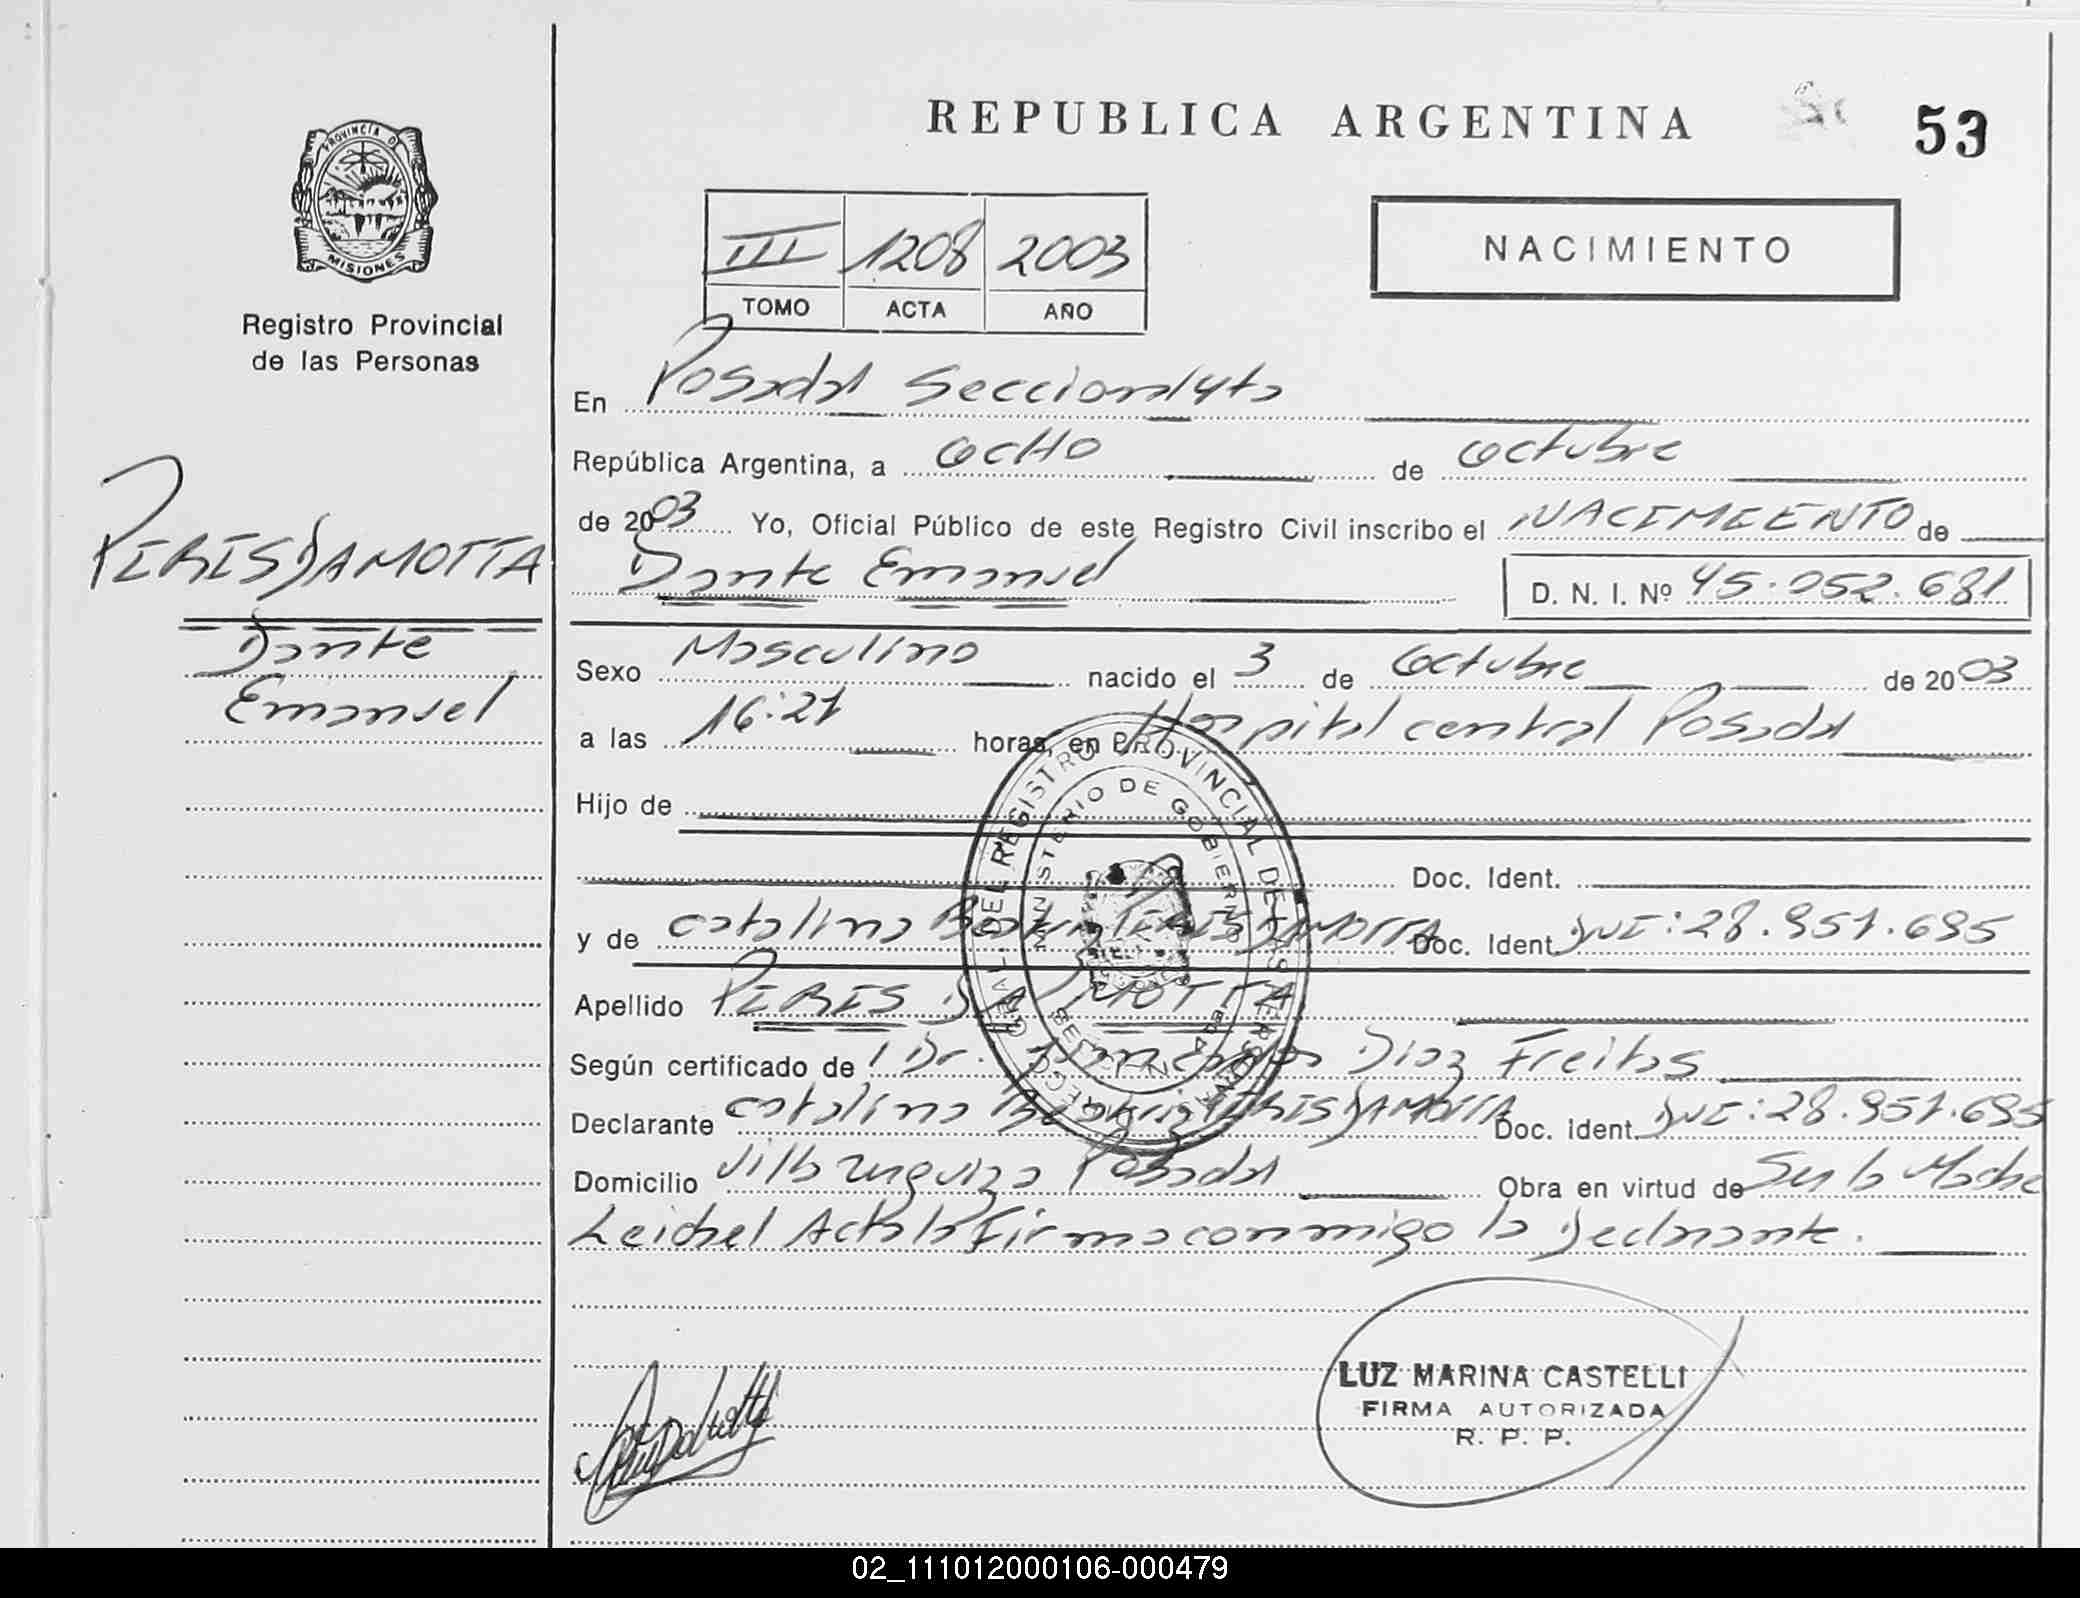 REPUBLICA ARGENTINA
53
PROVINCIA D
MISIONES
Registro Provincial
de las Personas
III 1208 2003
TOMO ACTA AÑO
NACIMIENTO
En Posadas Seccional 4ta
República Argentina, a ocHo de octubre
de 2003 Yo, Oficial Público de este Registro Civil inscribo el NACIMIENTO de
Dante Emanuel
D. N. I. Nº 45.052.681
PERIS DAMOTTA
Dante
Emanuel
Sexo Masculino nacido el 3 de Octubre de 2003
a las 16:21 horas, en Hospital central Posadas
Hijo de
Doc. Ident.
y de catalina Beatriz PERIS DAMOTTA Doc. Ident DNI: 28.951.695
Apellido PERIS DAMOTTA
Según certificado de Dr. Diaz Freitas
Declarante catalina Beatriz PERIS DAMOTTA Doc. Ident. DNI: 28.951.695
Domicilio Villa Urquiza Posadas Obra en virtud de Ser la Madre
Leida el Acta la Firma conmigo la Declarante.
GRAL. DEL REGISTRO PROVINCIAL DE LAS PERSONAS
MINISTERIO DE GOBIERNO
LUZ MARINA CASTELLI
FIRMA AUTORIZADA
R. P. P.
02_111012000106-000479